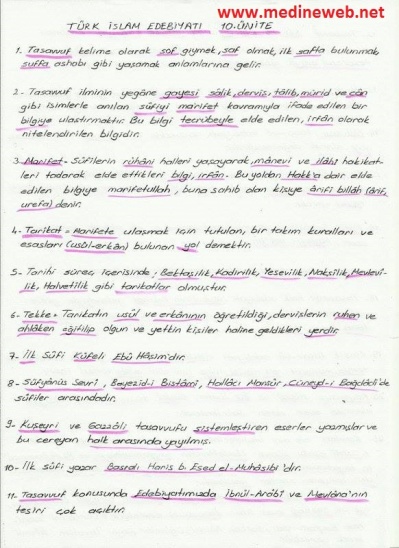 www.medineweb.net
TÜRK İSLAM EDEBİYATI 10.ÜNİTE
1. Tasavvuf kelime olarak sof giymek, saf olmak, ilk safta bulunmak,
suffa ashabı gibi yaşamak anlamlarına gelir.
2- Tasavvuf ilminin yegâne gayesi sâlik, derviş, tâlib, mürid ve cân
gibi isimlerle anılan sûfîyi mârifet kavramıyla ifade edilen bir
bilgiye ulaştırmaktır. Bu bilgi tecrübeyle elde edilen, irfân olarak
nitelendirilen bilgidir.
3. Marifet = Sûfîlerin rûhâni halleri yaşayarak, mânevi ve ilâhî hakikat-
leri tadarak elde ettikleri bilgi, irfân. Bu yoldan Hakk'a dair elde
edilen bilgiye marifetullah, buna sahib olan kişiye ârifi billâh (ârif,
urefa) denir.
4- Tarikat = Marifete ulaşmak için tutulan, bir takım kuralları ve
esasları (usûl-erkân) bulunan yol demektir.
5- Tarihi süreç içerisinde; Bektaşilik, Kadirilik, Yesevilik, Nakşilik, Mevlevi-
lik, Halvetilik gibi tarikatlar olmuştur.
6- Tekke = Tarikatın usûl ve erkânının öğretildiği, dervişlerin ruhen ve
ahlâken eğitilip olgun ve yetkin kişiler haline geldikleri yerdir.
7- İlk Sûfi Kûfeli Ebû Hâşim'dir.
8- Süfyânüs Sevrî, Bayezid-i Bistâmî, Hallâcı Mansûr, Cüneyd-i Bağdâdî'de
sûfiler arasındadır.
9- Kuşeyri ve Gazzâlî tasavvufu sistemleştiren eserler yazmışlar ve
bu cereyan halk arasında yayılmış.
10- İlk sûfi yazar Basralı Haris b. Esed el-Muhâsibi'dir.
11- Tasavvuf konusunda Edebiyatımızda İbnül-Arâbî ve Mevlâna'nın
tesiri çok açıktır.